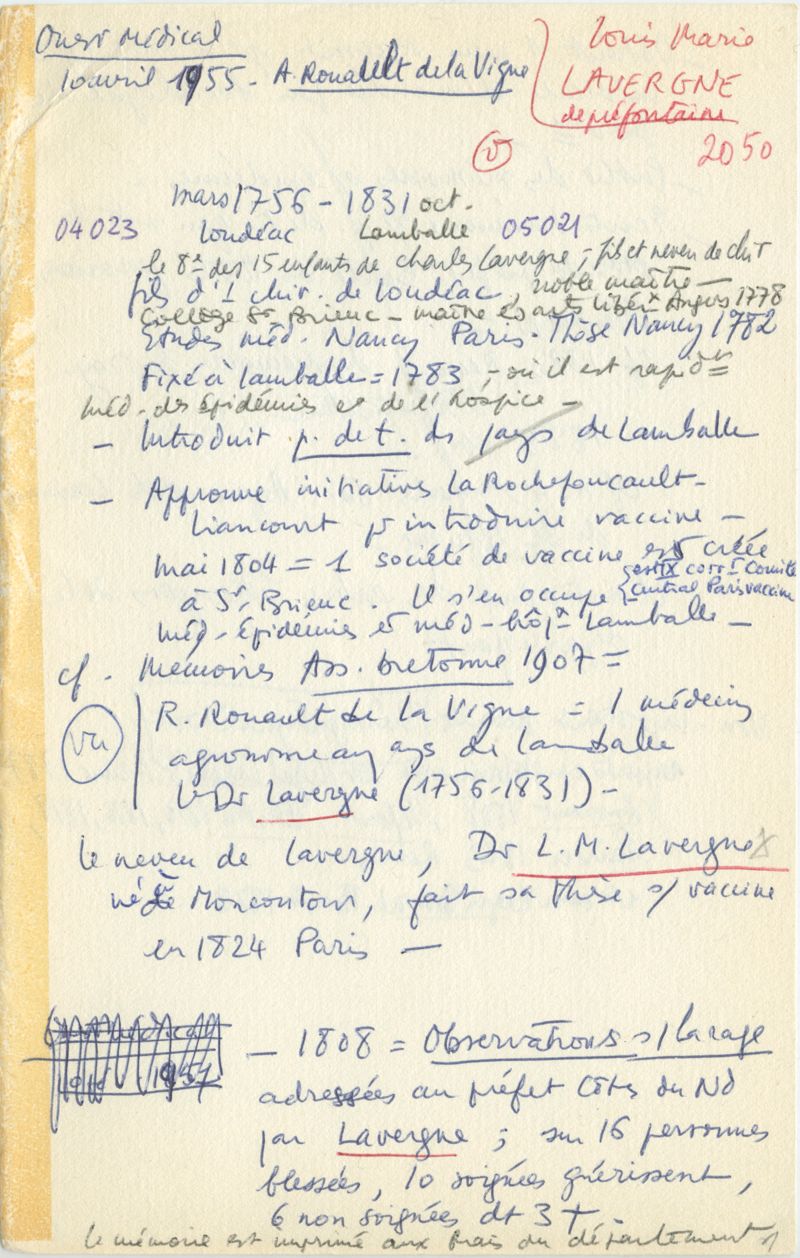 Ouest Médical
10 avril 1955 - A. Rouault de la Vigne
Louis Marie
LAVERGNE
de préfontaine
2050
mars 1756 - 1831 oct.
04023 Loudéac Lamballe 05021
le 8e des 15 enfants de Charles Lavergne, - fils et neveu de chir
fils d'1 chir. de Loudéac, noble maître -
Collège St Brieuc - maître ès arts libérx Angers 1778
Etudes méd. Nancy Paris. Thèse Nancy 1782
Fixé à Lamballe = 1783, - où il est rapidt
méd. des épidémies et de l'hospice -
- Introduit p. de t. ds pays de Lamballe
- Approuve initiatives La Rochefoucault-
Liancourt pr introduire vaccine -
mai 1804 = 1 société de vaccine est créée
à St. Brieuc. Il s'en occupe { est corrt Comité
central Paris vaccine
méd. épidémies et méd - hôpx Lamballe -
cf. Mémoires Ass. bretonne 1907 =
vu
R. Rouault de la Vigne = 1 médecin
agronome au pays de Lamballe
le Dr Lavergne (1756-1831) -
le neveu de Lavergne, Dr L. M. Lavergne x
né à Moncontour, fait sa thèse s/ vaccine
en 1824 Paris -
- 1808 = Observations s/ la rage
adressées au préfet Côtes du Nd
par Lavergne ; sur 16 personnes
blessées, 10 soignées guérissent,
6 non soignées dt 3 +.
le mémoire est imprimé aux frais du département